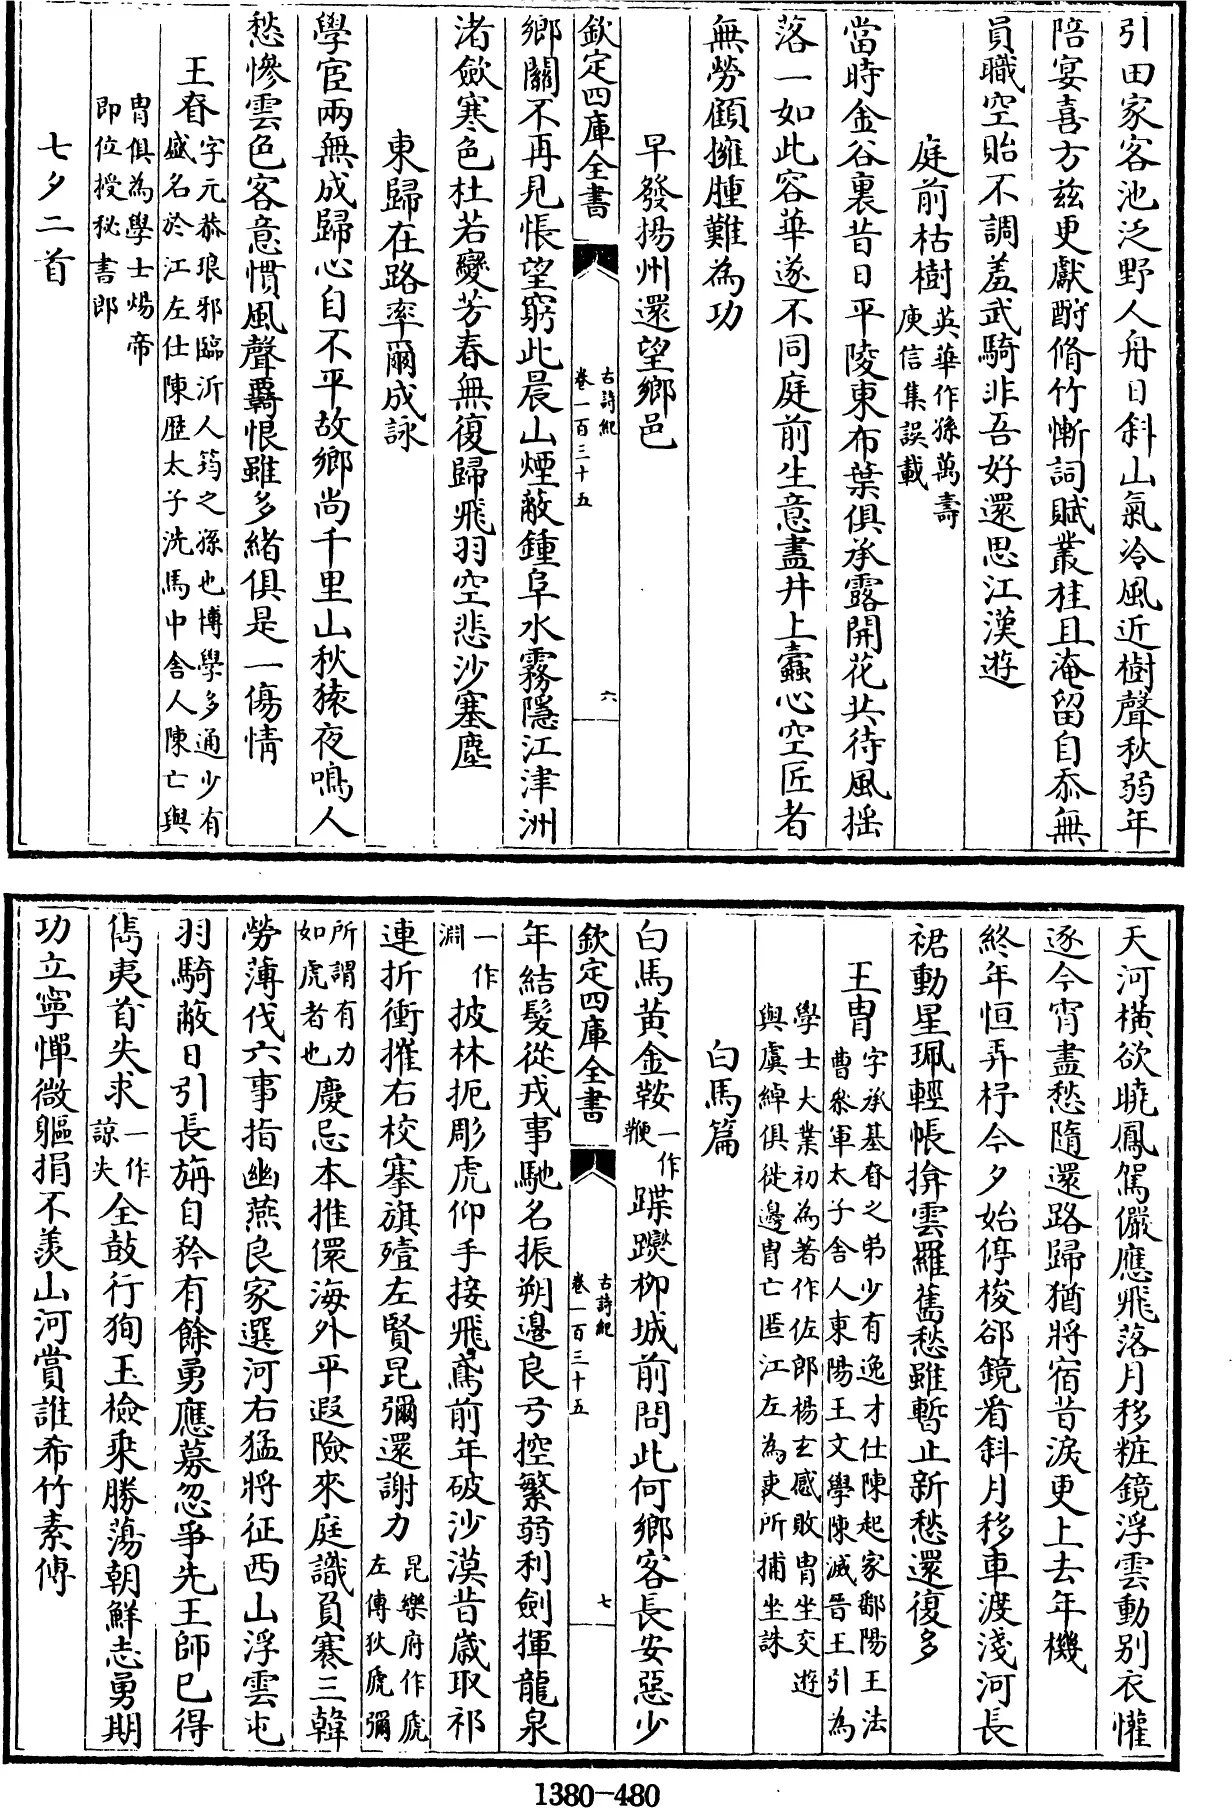 引田家客池泛野人舟日斜山氣冷風近樹聲秋弱年
陪宴喜方兹更獻酧脩竹慚詞賦叢桂且淹留自忝無
員職空貽不調羞武騎非吾好還思江漢遊
庭前枯樹英華作孫萬壽
庾信集誤載
當時金谷裏昔日平陵東布葉俱承露開花共待風揺
落一如此容華遂不同庭前生意盡井上蠧心空匠者
無勞顧擁腫難為功
早發揚州還望鄉邑
欽定四庫全書
古詩紀
卷一百三十五
六
鄉關不再見悵望窮此晨山煙蔽鍾阜水霧隱江津洲
渚歛寒色杜若變芳春無復歸飛羽空悲沙塞塵
東歸在路率爾成詠
學宦兩無成歸心自不平故鄉尚千里山秋猿夜鳴人
愁慘雲色客意慣風聲羇恨雖多緒俱是一傷情
王眘字元恭琅邪臨沂人筠之孫也博學多通少有
盛名於江左仕陳歴太子洗馬中舍人陳亡與
胄俱為學士煬帝
即位授秘書郎
七夕二首
天河横欲曉鳳駕儼應飛落月移粧鏡浮雲動别衣懽
逐今宵盡愁隨還路歸猶將宿昔淚更上去年機
終年恒弄杼今夕始停梭却鏡看斜月移車渡淺河長
裙動星珮輕帳揜雲羅舊愁雖暫止新愁還復多
王胄字承基眘之弟少有逸才仕陳起家鄱陽王法
曹叅軍太子舍人東陽王文學陳滅晉王引為
學士大業初為著作佐郎楊玄感敗胄坐交遊
與虞綽俱徙邊胄亡匿江左為吏所捕坐誅
白馬篇
白馬黄金鞍一作
鞭蹀躞柳城前問此何鄉客長安惡少
欽定四庫全書
古詩紀
卷一百三十五
七
年結髮從戎事馳名振朔邊良弓控繁弱利劍揮龍泉
一作
淵披林扼彫虎仰手接飛鳶前年破沙漠昔歲取祁
連折衝摧右校搴旗殪左賢昆彌還謝力昆樂府作虒
左傳狄虒彌
所謂有力
如虎者也慶忌本推儇海外平遐險來庭識負褰三韓
勞薄伐六事指幽燕良家選河右猛將征西山浮雲屯
羽騎蔽日引長旃自矜有餘勇應募忽爭先王師已得
雋夷首失求一作
諒失全鼓行徇玉檢乘勝蕩朝鮮志勇期
功立寧憚微軀捐不羨山河賞誰希竹素傳
1380-480